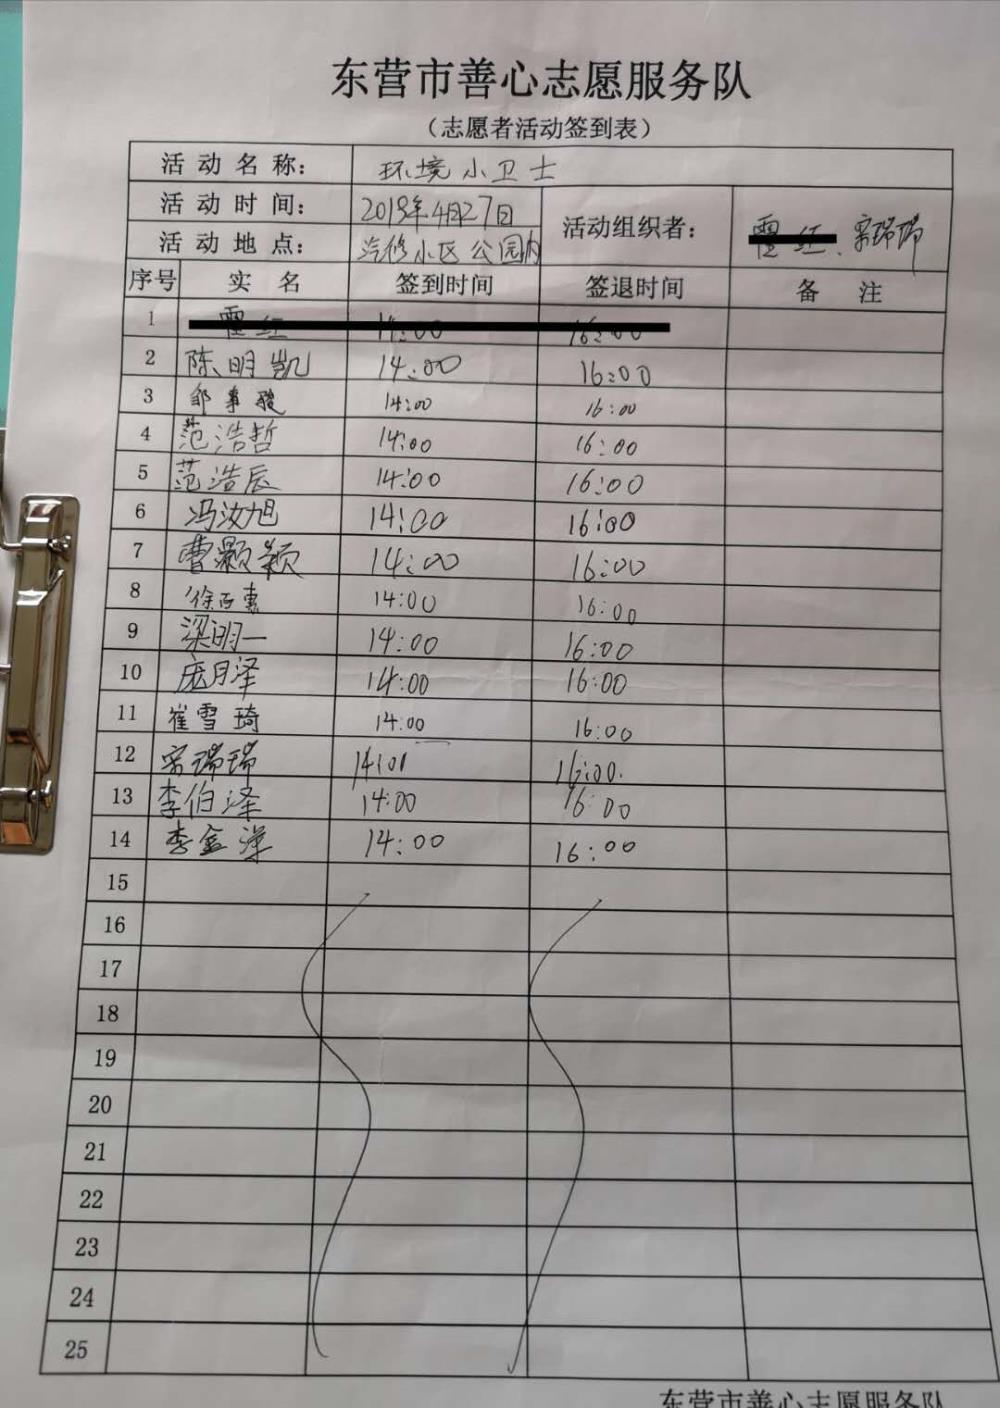 东营市善心志愿服务队
（志愿者活动签到表）
活动名称： 环境小卫士
活动时间： 2019年4月27日 活动组织者： 宋瑞瑞
活动地点： 汽修小区公园内
序号 实名 签到时间 签退时间 备注
1 14:00 16:00
2 陈明凯 14:00 16:00
3 14:00 16:00
4 范浩哲 14:00 16:00
5 范浩辰 14:00 16:00
6 冯汝旭 14:00 16:00
7 曹颢颖 14:00 16:00
8 14:00 16:00
9 梁明一 14:00 16:00
10 庞月泽 14:00 16:00
11 崔雪琦 14:00 16:00
12 宋瑞瑞 14:01 16:00.
13 李伯泽 14:00 16:00
14 李金洋 14:00 16:00
15
16
17
18
19
20
21
22
23
24
25
东营市善心志愿服务队